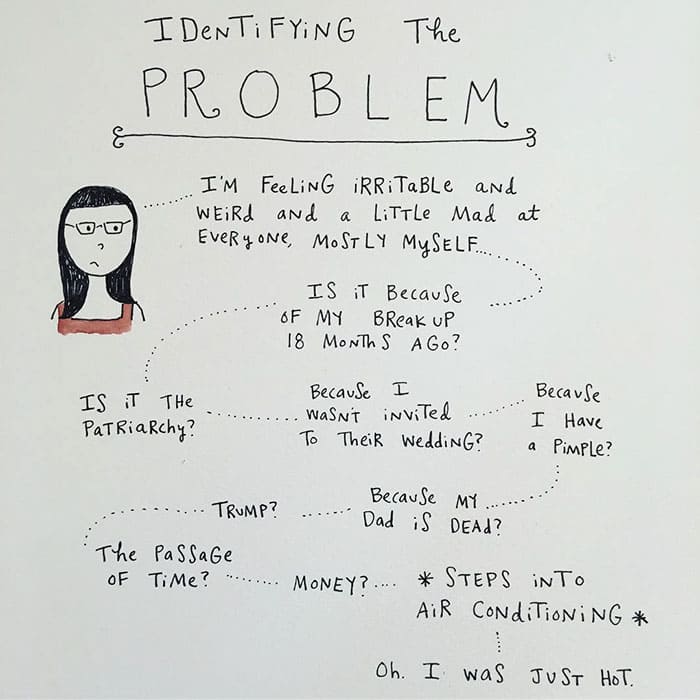 IDENTIFYING THE
PROBLEM
I'M FEELING IRRITABLE AND
WEIRD AND A LITTLE MAD AT
EVERYONE, MOSTLY MYSELF...
IS IT BECAUSE
OF MY BREAK UP
18 MONTHS AGO?
IS IT THE
PATRIARCHY?
BECAUSE I
WASN'T INVITED
TO THEIR WEDDING?
BECAUSE
I HAVE
A PIMPLE?
BECAUSE MY
DAD IS DEAD?
TRUMP?
THE PASSAGE
OF TIME?
MONEY?
* STEPS INTO
AIR CONDITIONING *
OH. I WAS JUST HOT.